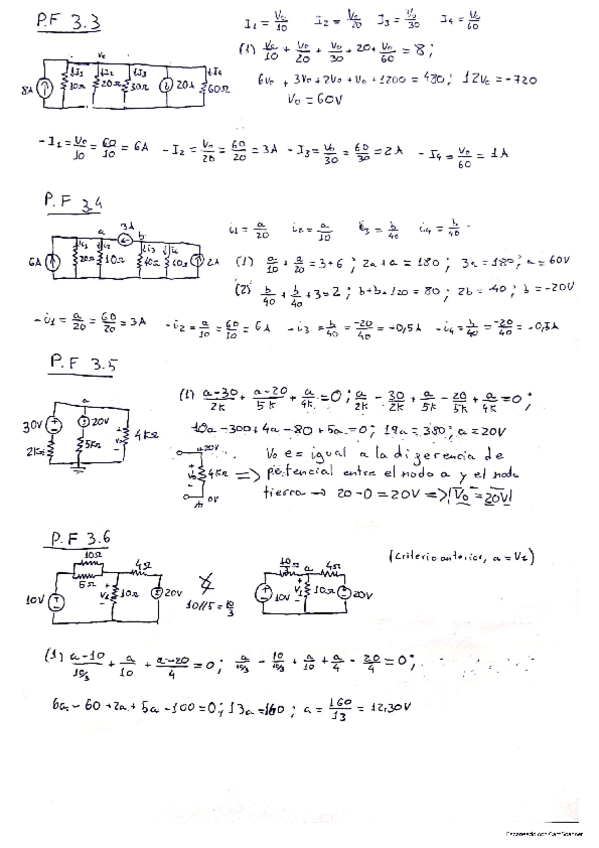 P.F 3.3
I1 = Vo/10 I2 = Vo/20 I3 = Vo/30 I4 = Vo/60
(1) Vo/10 + Vo/20 + Vo/30 + 20 + Vo/60 = 8;
6Vo + 3Vo + 2Vo + Vo + 1200 = 480; 12Vo = -720
Vo = 60V
Vo
8A I1 10Ω I2 20Ω I3 30Ω 20A I4 60Ω
- I1 = Vo/10 = 60/10 = 6A - I2 = Vo/20 = 60/20 = 3A - I3 = Vo/30 = 60/30 = 2A - I4 = Vo/60 = 1A
P.F 3.4
i1 = a/20 i2 = a/10 i3 = b/40 i4 = b/40
a 3A b
6A i1 20Ω i2 10Ω i3 40Ω i4 40Ω 2A
(1) a/10 + a/20 = 3+6; 2a + a = 180; 3a = 180; a = 60V
(2) b/40 + b/40 + 3 = 2; b + b + 120 = 80; 2b = -40; b = -20V
- i1 = a/20 = 60/20 = 3A - i2 = a/10 = 60/10 = 6A - i3 = b/40 = -20/40 = -0,5A - i4 = b/40 = -20/40 = -0,5A
P.F 3.5
(1) a-30/2k + a-20/5k + a/4k = 0; a/2k - 30/2k + a/5k - 20/5k + a/4k = 0;
10a - 300 + 4a - 80 + 5a = 0; 19a = 380; a = 20V
a
30V 20V + Vo - 4kΩ
2kΩ 5kΩ
20V + Vo - 4kΩ 0V
Vo es igual a la diferencia de
potencial entre el nodo a y el nodo
tierra → 20 - 0 = 20V => Vo = 20V
P.F 3.6
10Ω 5Ω 4Ω
10V + V1 - 10Ω 20V
10//5 = 10/3
10/3 Ω a 4Ω
10V + V1 - 10Ω 20V
(criterio anterior, a = V1)
(1) a-10/10/3 + a/10 + a-20/4 = 0; a/10/3 - 10/10/3 + a/10 + a/4 - 20/4 = 0;
6a - 60 + 2a + 5a - 100 = 0; 13a = 160; a = 160/13 = 12,30V
Escaneado con CamScanner